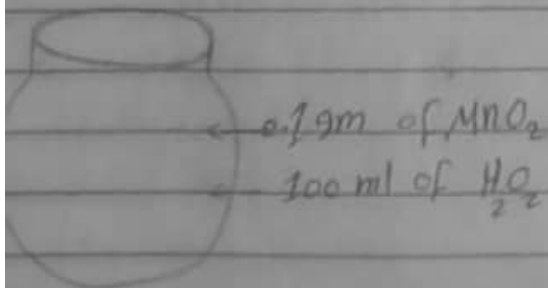 0.1 gm of MnO₂
100 ml of H₂O₂